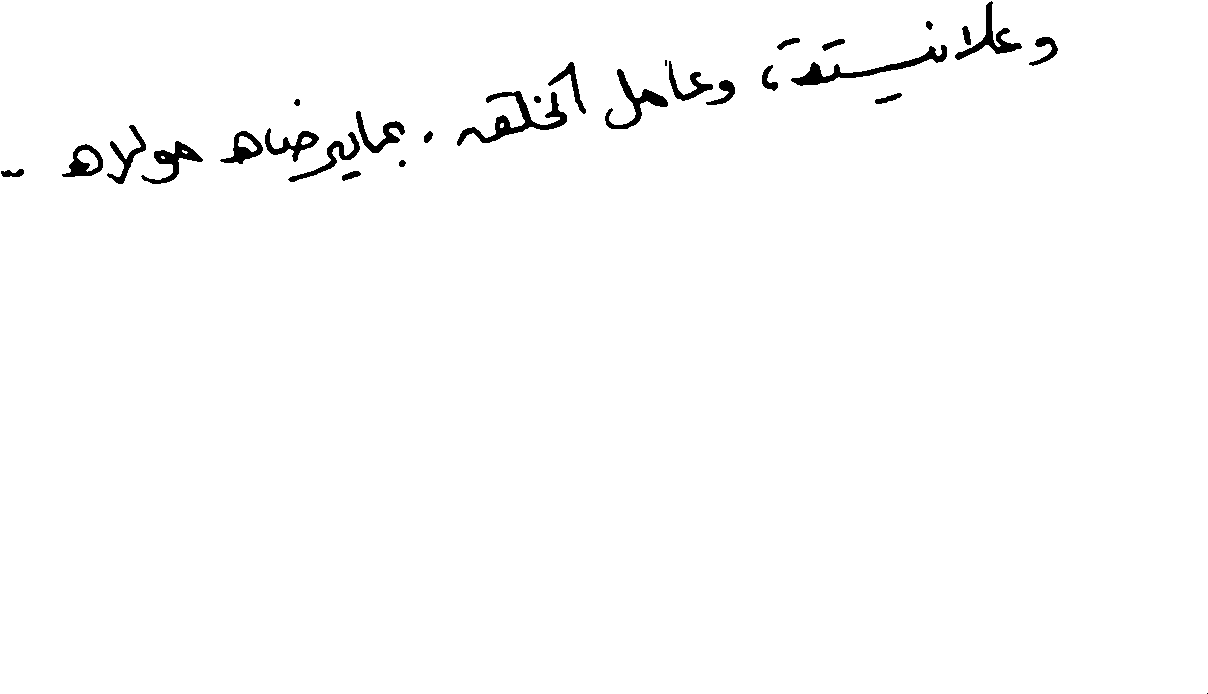 وعلانيته، وعامل الخلق بما يرضاه مولاه ..